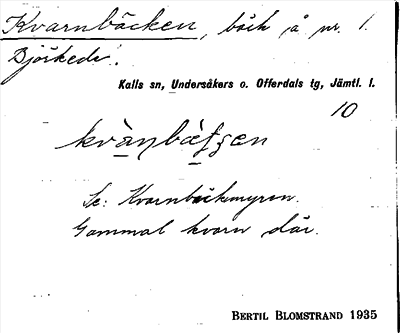 Kvarnbäcken, bäck å nr. 1.
Björkede.
Kalls sn, Undersåkers o. Offerdals tg, Jämtl. l.
10
Se: Kvarnbäckmyren.
Gammal kvarn där.
BERTIL BLOMSTRAND 1935